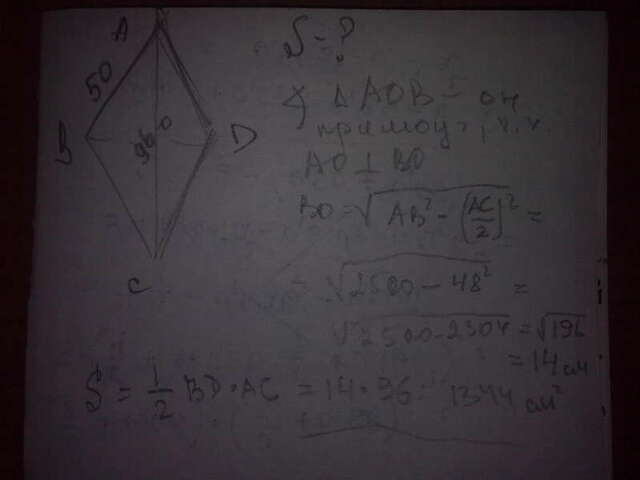 A
50
B
96
O
D
C
S = ?
∢ △ AOB – он
прямоуг, т.к.
AO ⊥ BO
BO = √(AB² − (AC/2)²) =
= √(2500 − 48²) =
√(2500 − 2304) = √196
= 14 см
S = 1/2 BD · AC = 14 · 96 1344 см²